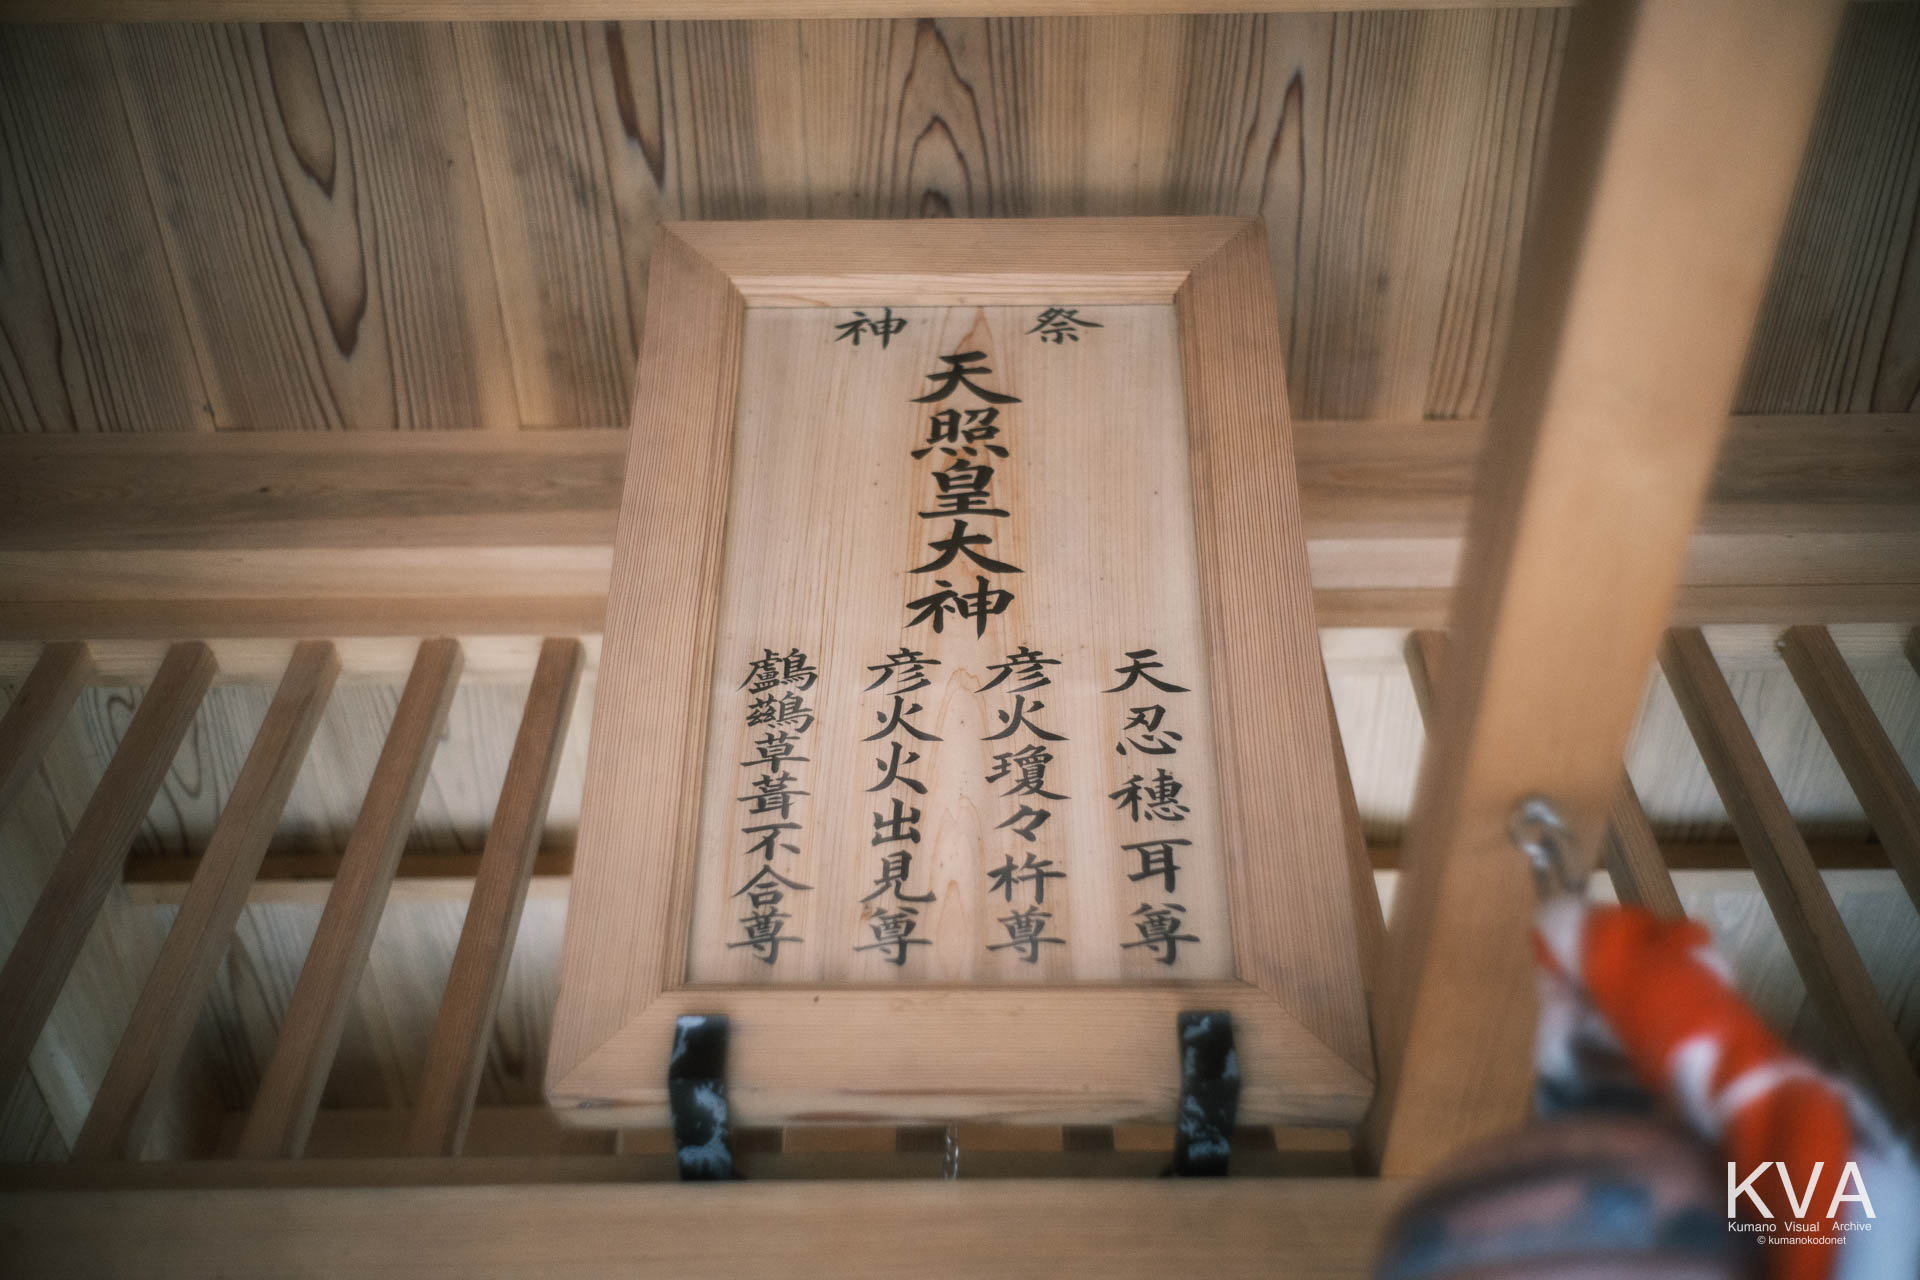 祭神
天照皇大神
天忍穗耳尊
彦火瓊々杵尊
彦火火出見尊
鸕鶿草葺不合尊
KVA
Kumano Visual Archive
© kumanokodonet